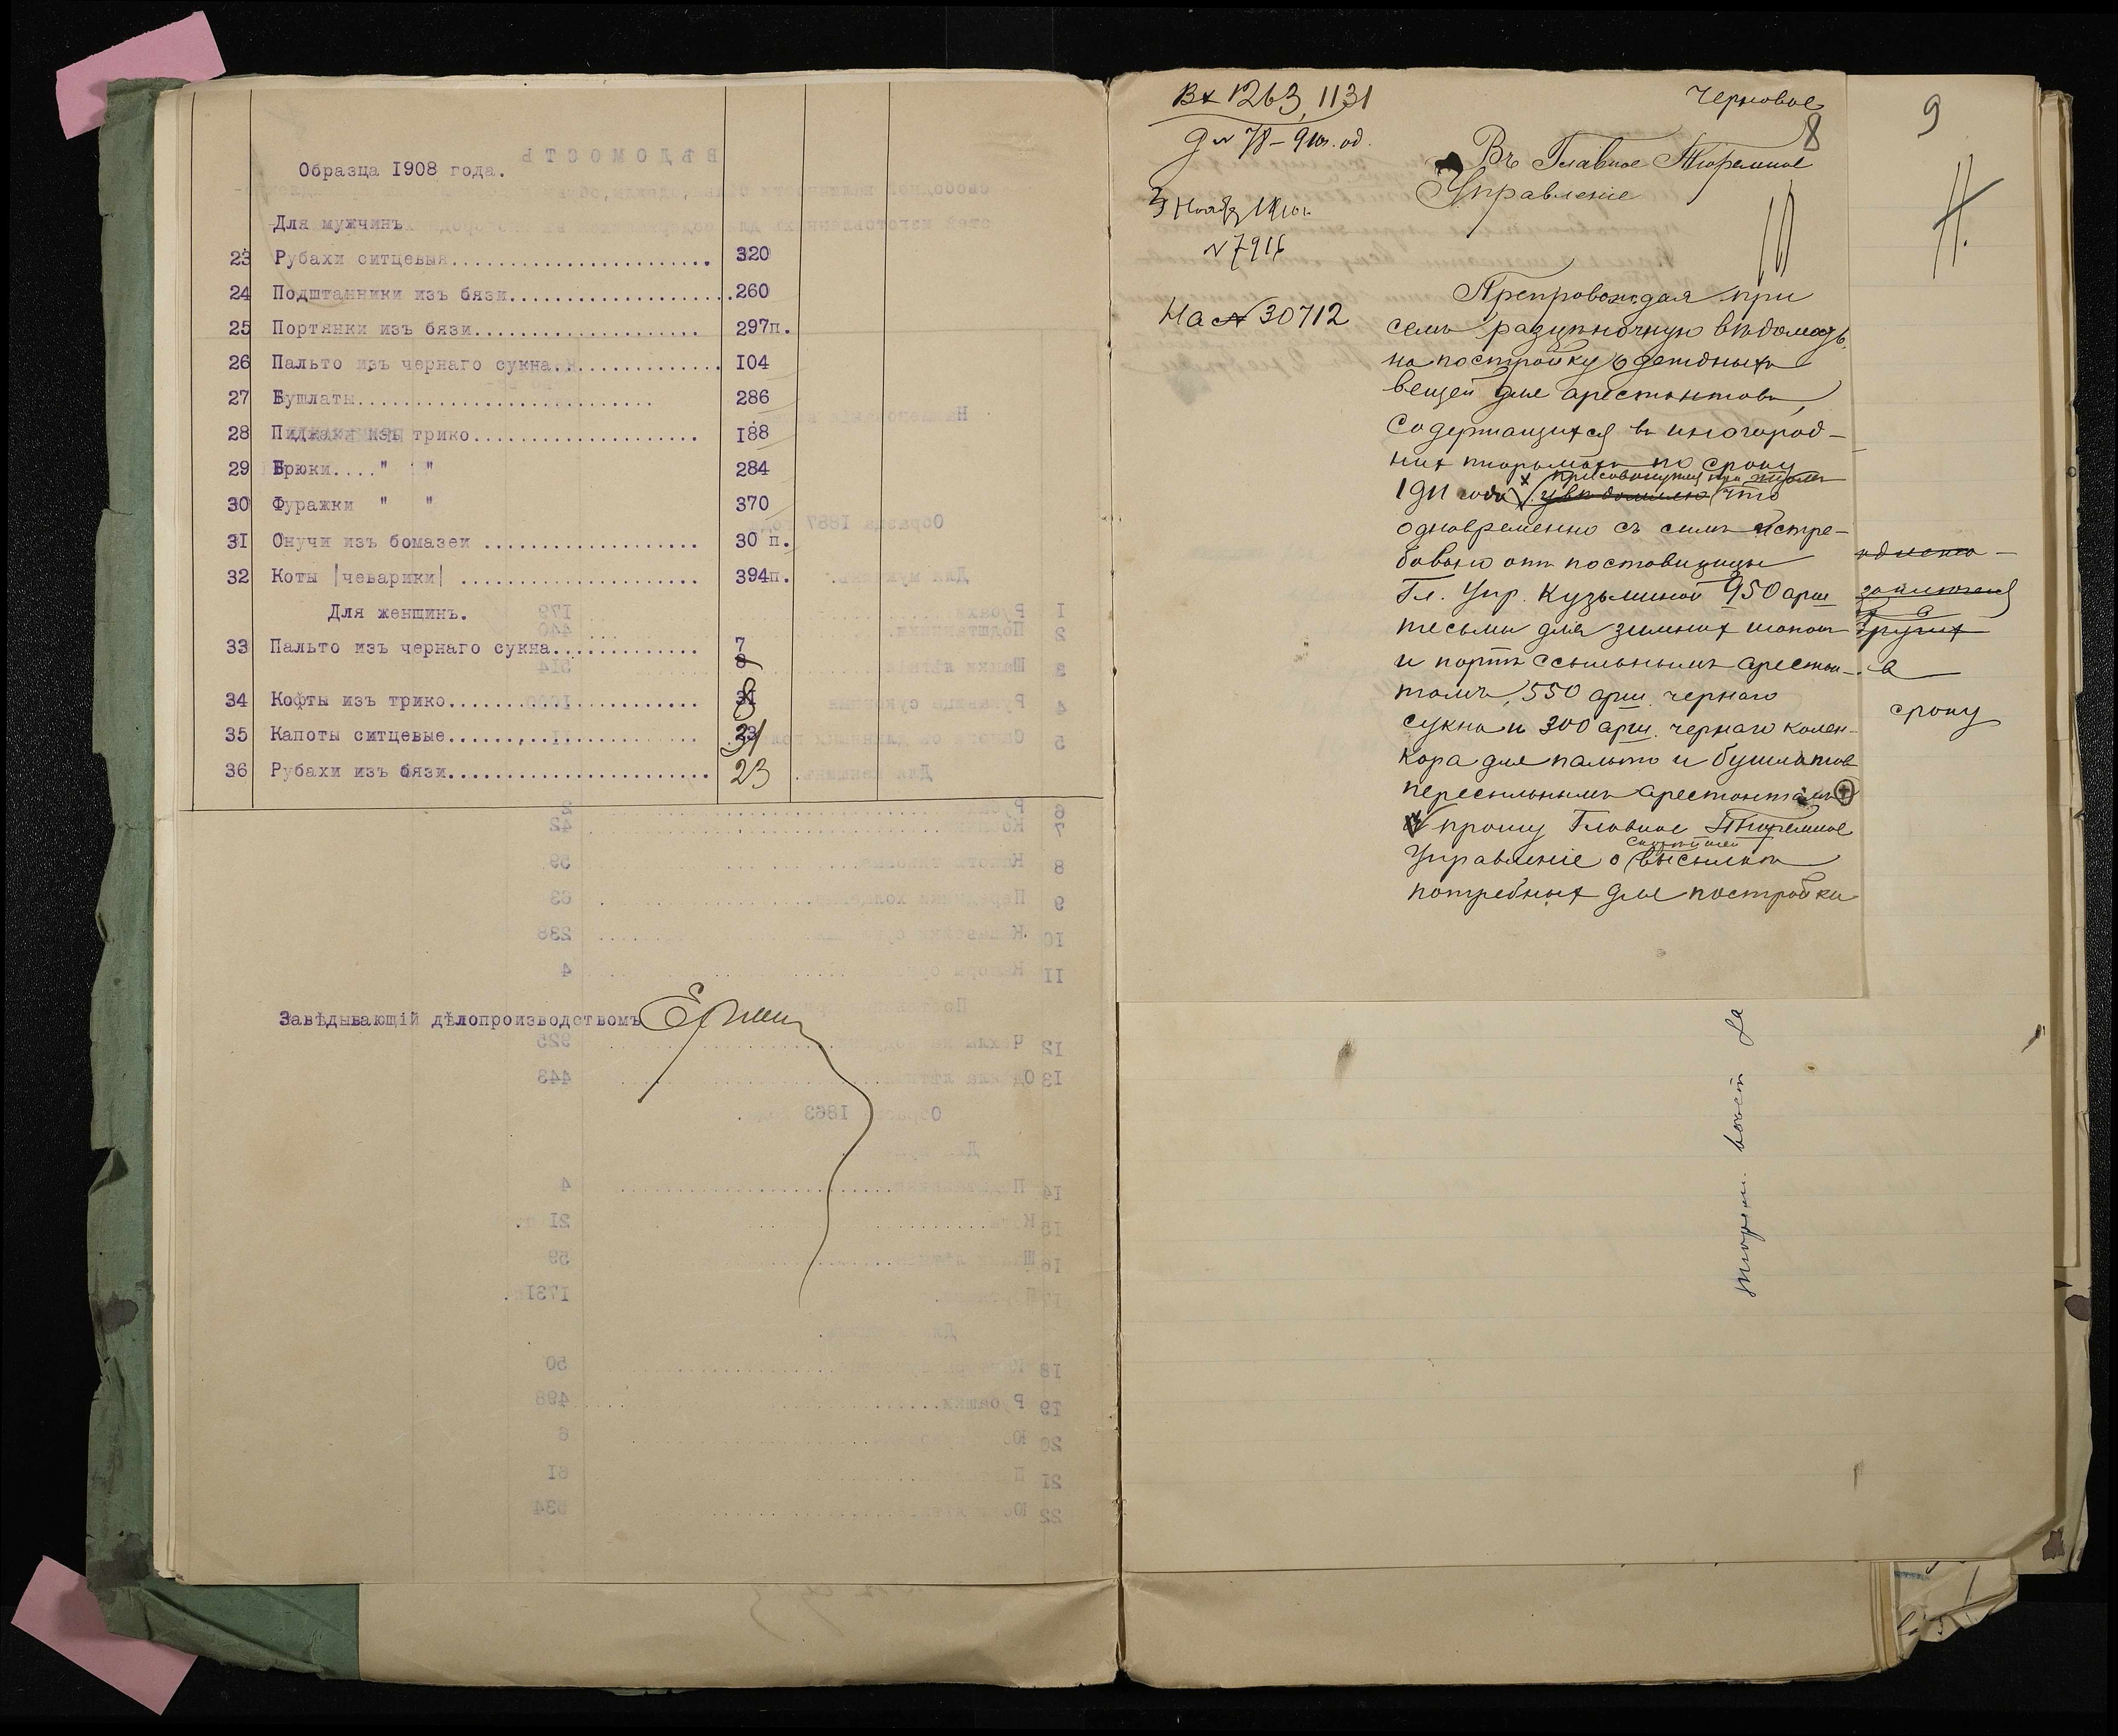 Образца I908 года.
Для мужчинъ
23 Рубахи ситцевыя........................ 320
24 Подштанники изъ бязи..................... 260
25 Портянки изъ бязи..................... 297п.
26 Пальто изъ чернаго сукна............... I04
27 Бушлаты........................... 286
28 Пиджаки изъ трико..................... I88
29 Брюки...." " 284
30 Фуражки " " 370
3I Онучи изъ бомазеи .................... 30 п.
32 Коты |чеварики| ...................... 394п.
Для женщинъ.
33 Пальто изъ чернаго сукна.............. 7
34 Кофты изъ трико....................... 8
35 Капоты ситцевые....................... 31
36 Рубахи изъ бязи........................ 23
Завѣдывающій дѣлопроизводствомъ
Вх 1263, 1131
Черновое
8
9
Въ Главное Тюремное
Управленіе
3 Ноября 1910 г.
№ 7916
На № 30712
Препровождая при
семъ разцѣночную вѣдомость
на постройку одежныхъ
вещей для арестантовъ,
содержащихся въ иногород-
них тюрьмахъ по сроку
1911 года увѣдомляю что
одновременно съ симъ истре-
бовано отъ поставщицы
Гл. Упр. Кузьминой 950 арш
тесьмы для зимних шапок
и портъ ссыльнымъ арестан-
тамъ, 550 арш. чернаго
сукна и 300 арш. чернаго колен-
кора для пальто и бушлатов
пересыльнымъ арестантамъ
и прошу Главное Тюремное
Управленіе о высылкѣ
потребных для постройки
сроку